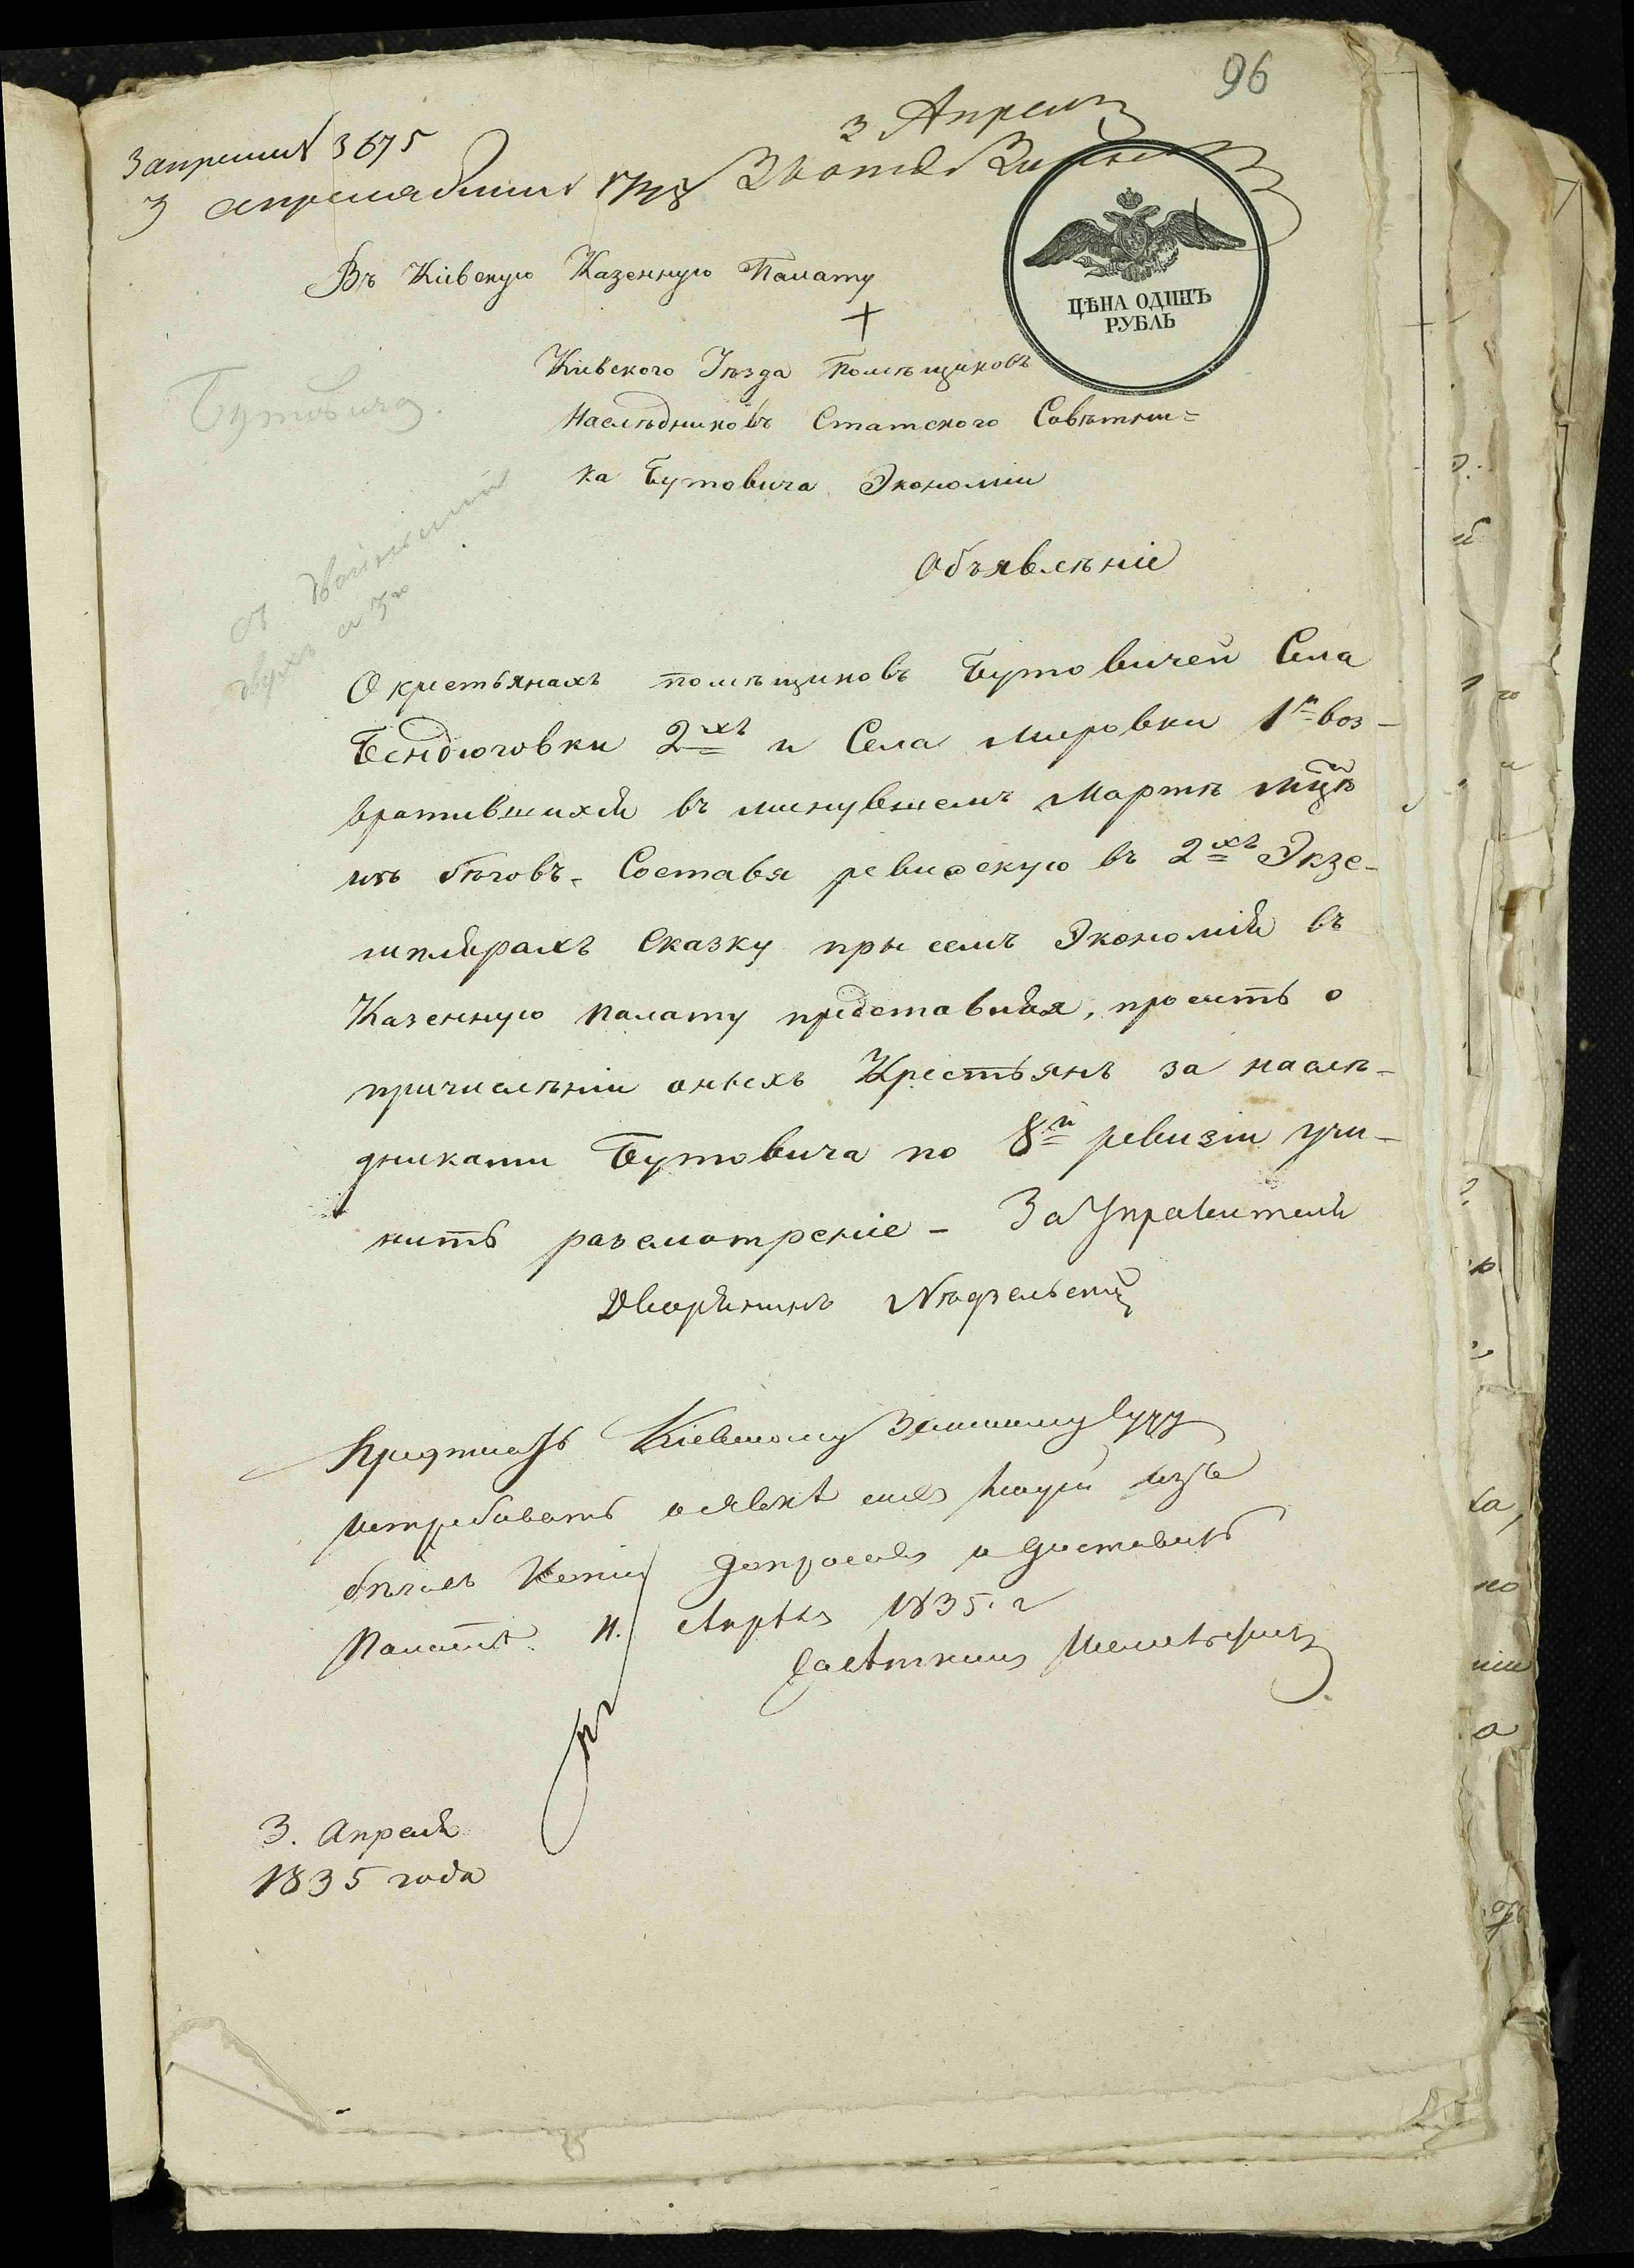 96
3 Апреля
3675
Въ Кіевскую Казенную Палату
ЦѢНА ОДИНЪ
РУБЛЬ
Кіевского Уѣзда Помѣщиковъ
Наслѣдниковъ Статского Совѣтни=
ка Бутовича Экономіи
Бутовича
Объявлѣніе
О крестьянахъ помѣщиковъ Бутовичей Села
Бендюговки 2хъ и Села Мировки 1м воз-
вратившихся въ минувшемъ Мартѣ мцѣ
изъ бѣговъ. Составя ревизскую въ 2хъ Экзе-
мплярахъ Сказку пры семъ Экономія въ
Казенную палату представляя, просить о
причислѣніи оныхъ Крестьянъ за наслѣ-
дниками Бутовича по 8й ревизіи учи-
нить разсмотреніе - За Управителя
Дворянинъ
Предписать Кіевскому Земскому Суду
истребовать
допросовъ и доставить
Палатѣ. 1835. г
Совѣтникъ
3. Апреля
1835 года